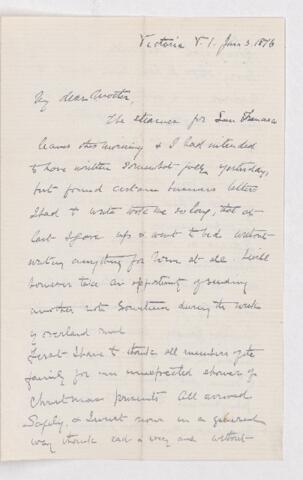 Victoria V.I. Jan 3. 1876
My dear Mother,
The steamer for San Francisco
leaves this morning & I had intended
to have written somewhat fully yesterday,
but found certain business letters
I had to write took me so long, that at
last I gave up & went to bed without
writing anything for home at all. I will
however take an opportunity of sending
another note sometime during the week
by overland mail
First I have to thank all members of the
family for an unexpected shower of
Christmas presents. All arrived
Safely, & I must now in a general
way thank each & every one without